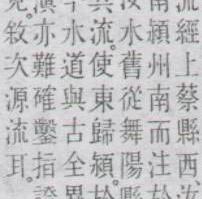 流經上蔡縣西汝
南潁州南而注於
汝水舊從舞陽縣
流。使東歸潁於
水道與古全異
亦難確鑿指證
敘次源流耳。